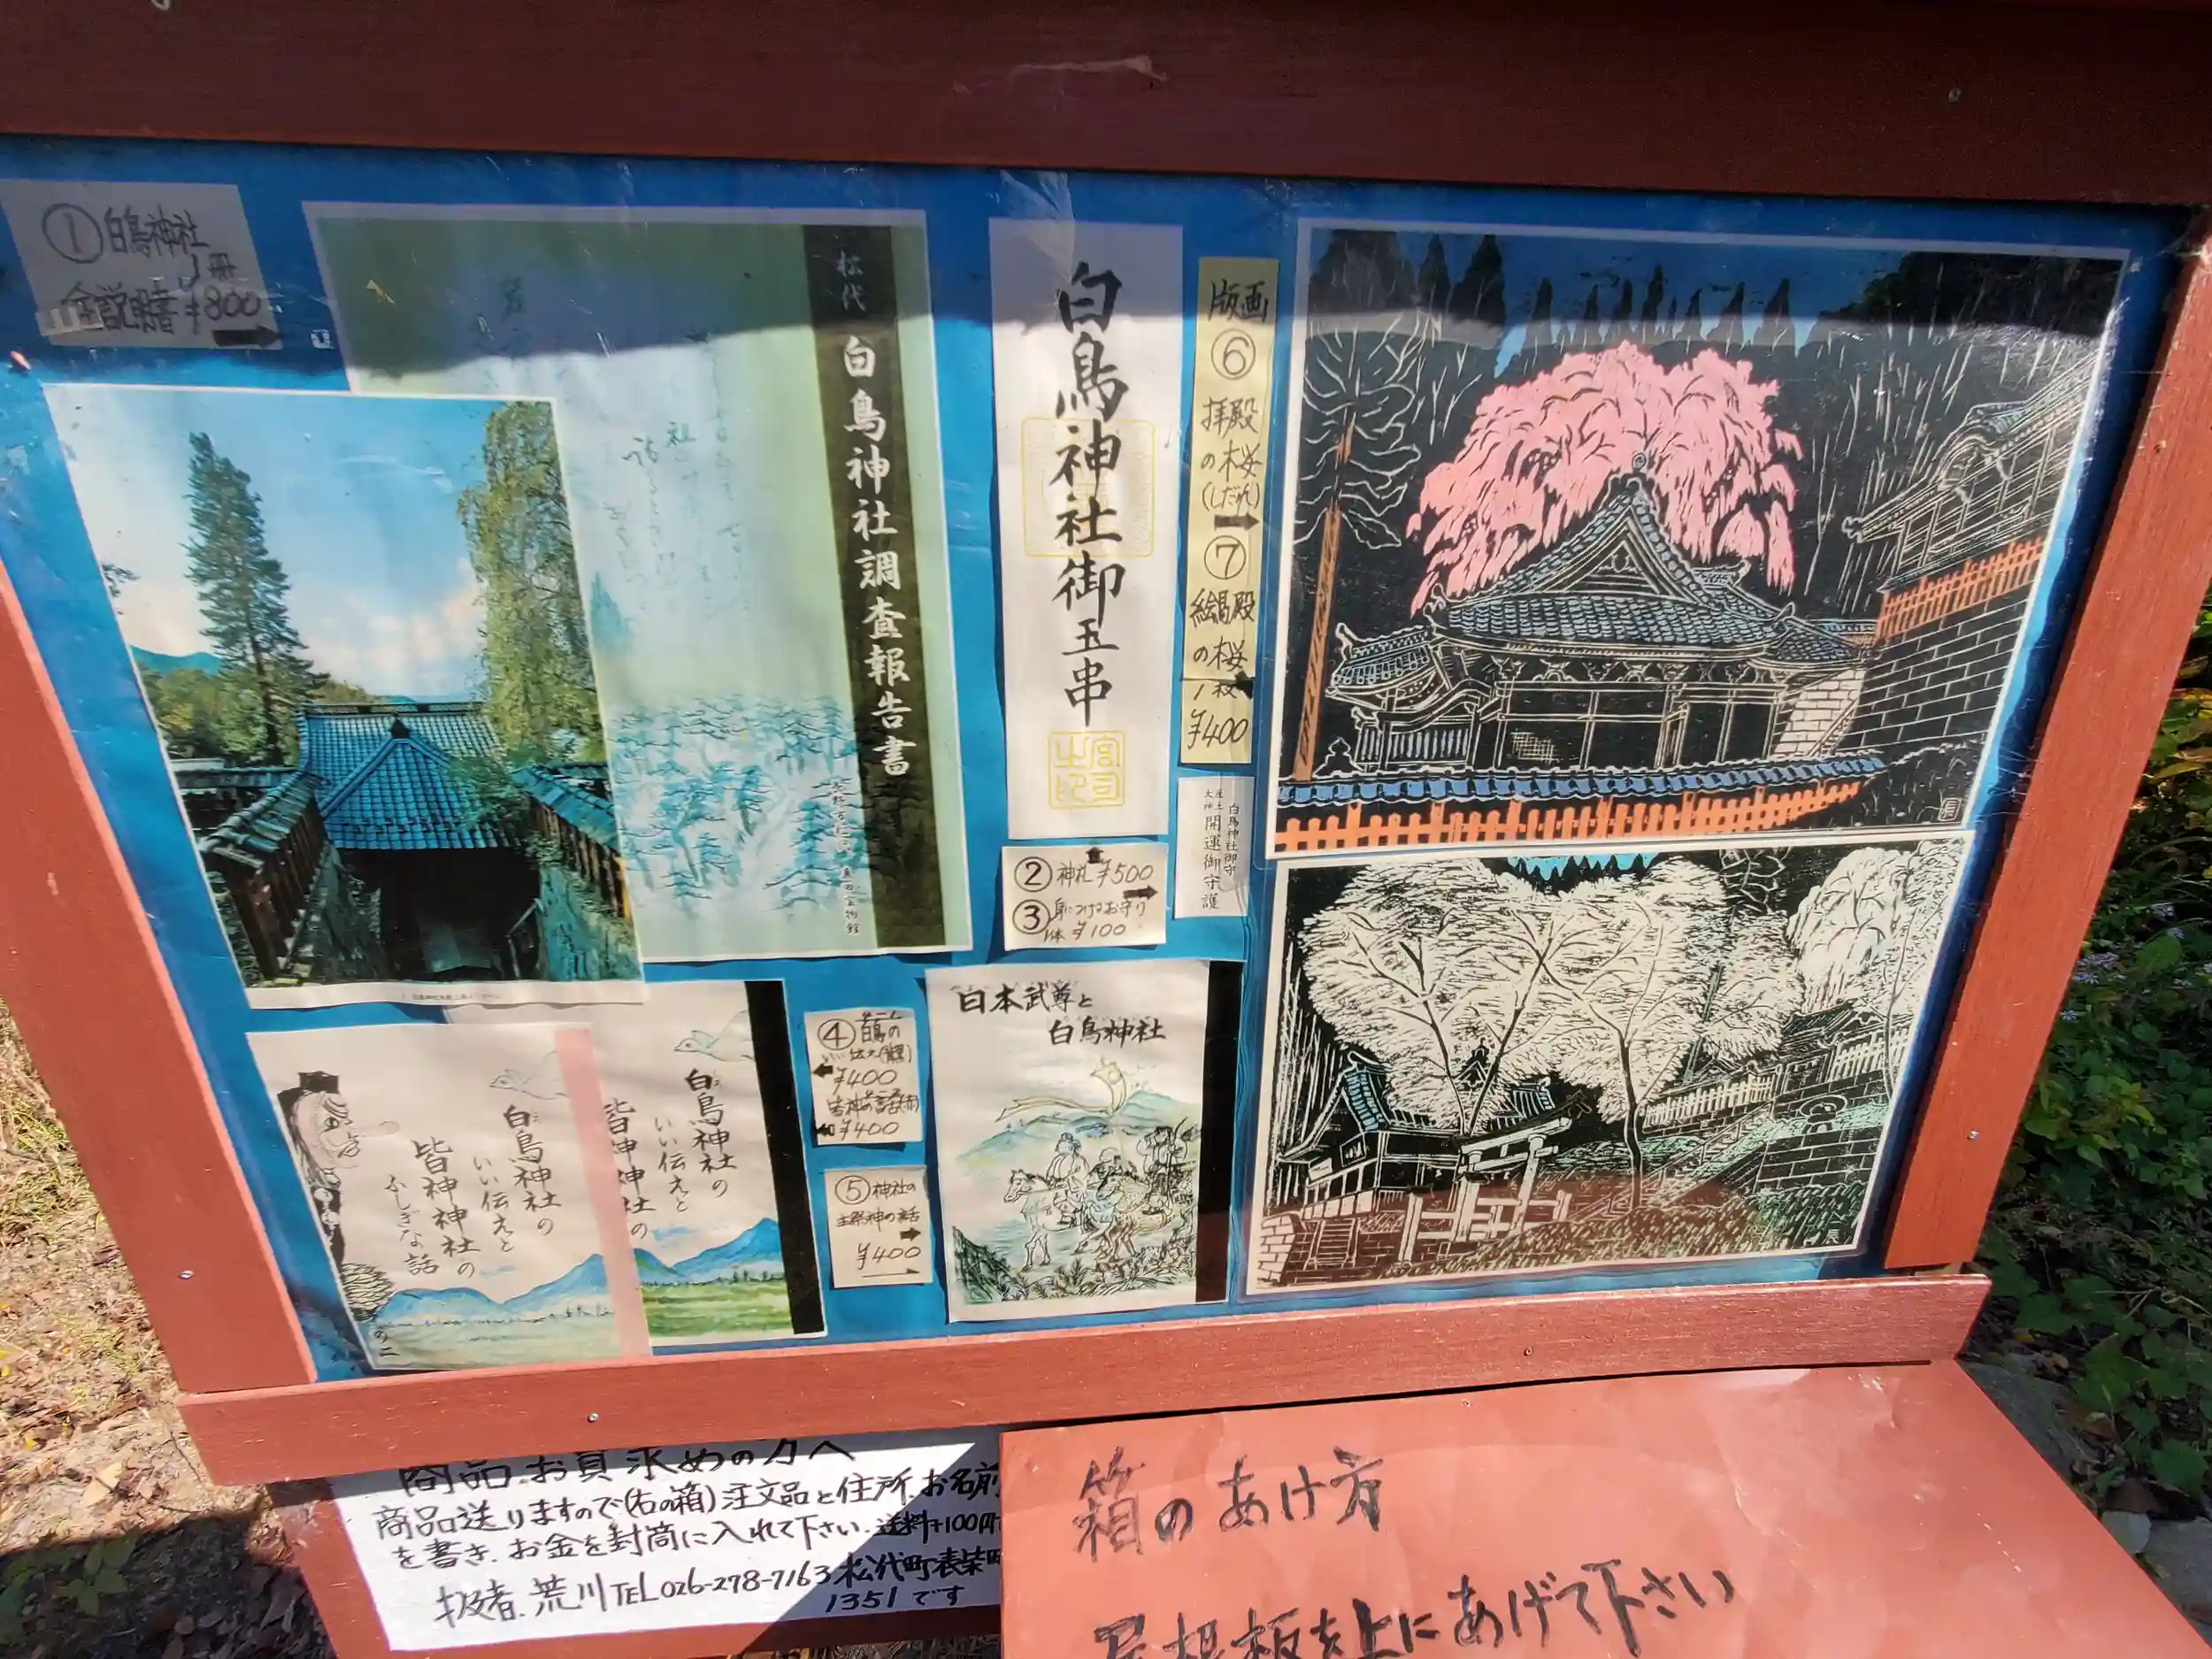 ①白鳥神社
1冊
全説明書¥800
松代 白鳥神社調査報告書
白鳥神社御玉串
宮司之印
版画
⑥
拝殿
の桜
(しだれ)
⑦
絵馬殿
の桜
1枚
¥400
②神札¥500
③身につけるお守り
1体¥100
白鳥神社御守
産土大神
開運御守護
白鳥神社の
いい伝えと
皆神神社の
ふしぎな話
の二
白鳥神社の
いい伝えと
皆神神社の
④白鳥の
¥400
¥400
⑤神社の
主祭神の話
¥400
日本武尊と
白鳥神社
商品お買求めの方へ
商品送りますので(右の箱)注文品と住所.お名前
を書き.お金を封筒に入れて下さい.送料+100円
扱者.荒川TEL026-278-7163松代町表柴町
1351です
箱のあけ方
屋根板を上にあげて下さい